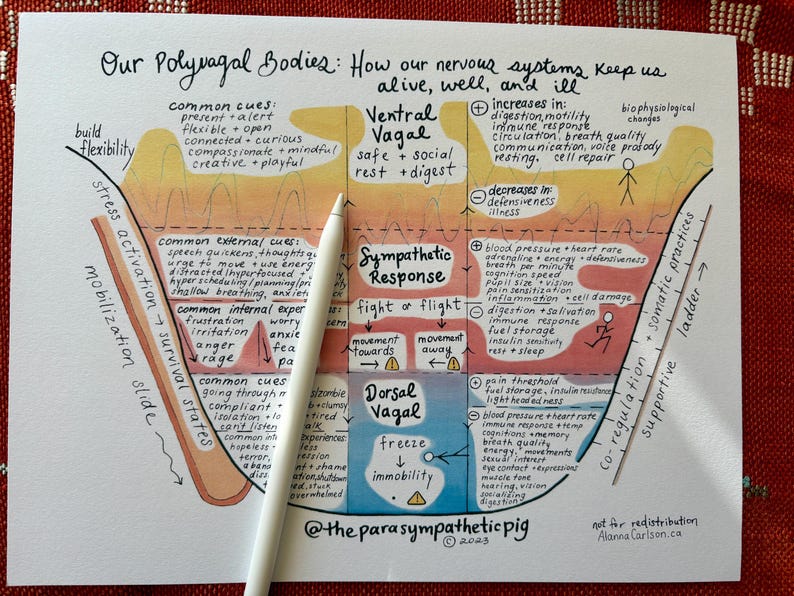 Our Polyvagal Bodies: How our nervous systems keep us
alive, well, and ill
build
flexibility
common cues:
present + alert
flexible + open
connected + curious
compassionate + mindful
creative + playful
Ventral
Vagal
safe + social
rest + digest
+ increases in:
digestion, motility
immune response
circulation, breath quality
communication, voice prosody
resting, cell repair
biophysiological
changes
- decreases in:
defensiveness
illness
stress activation → survival states
mobilization slide
common external cues:
speech quickens, thoughts
urge to move + use energy
distracted/hyperfocused +
hyper scheduling/planning/
shallow breathing,
common internal
frustration
irritation
anger
rage
worry
Sympathetic
Response
fight or flight
movement
towards
movement
away
+ blood pressure + heart rate
adrenaline + energy + defensiveness
breath per minute
cognition speed
pupil size + vision
pain sensitization
inflammation + cell damage
- digestion + salivation
immune response
fuel storage
insulin sensitivity
rest + sleep
common cues
going through
/zombie
compliant +
+ clumsy
isolation +
tired
can't listen
common
experiences:
hopeless +
terror,
+ shame
shutdown
stuck
overwhelmed
Dorsal
Vagal
freeze
immobility
+ pain threshold
fuel storage, insulin resistance
lightheadedness
- blood pressure + heart rate
immune response + temp
cognitions + memory
breath quality
energy, movements
sexual interest
eye contact + expressions
muscle tone
hearing, vision
socializing
digestion
co-regulation + somatic practices
supportive ladder →
@theparasympatheticpig
© 2023
not for redistribution
AlannaCarlson.ca